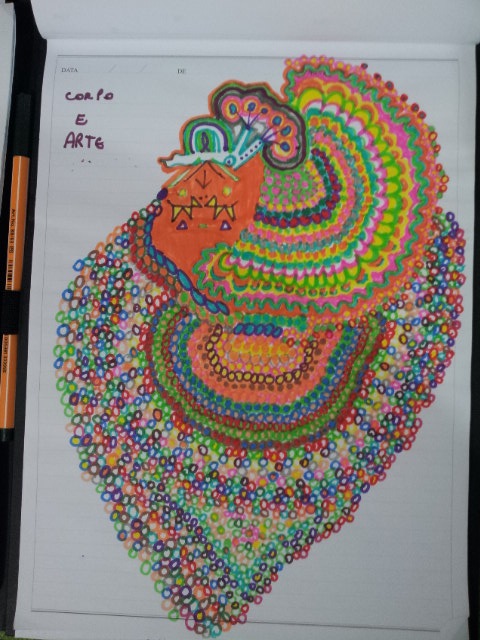 DATA DE
CORPO
E
ARTE